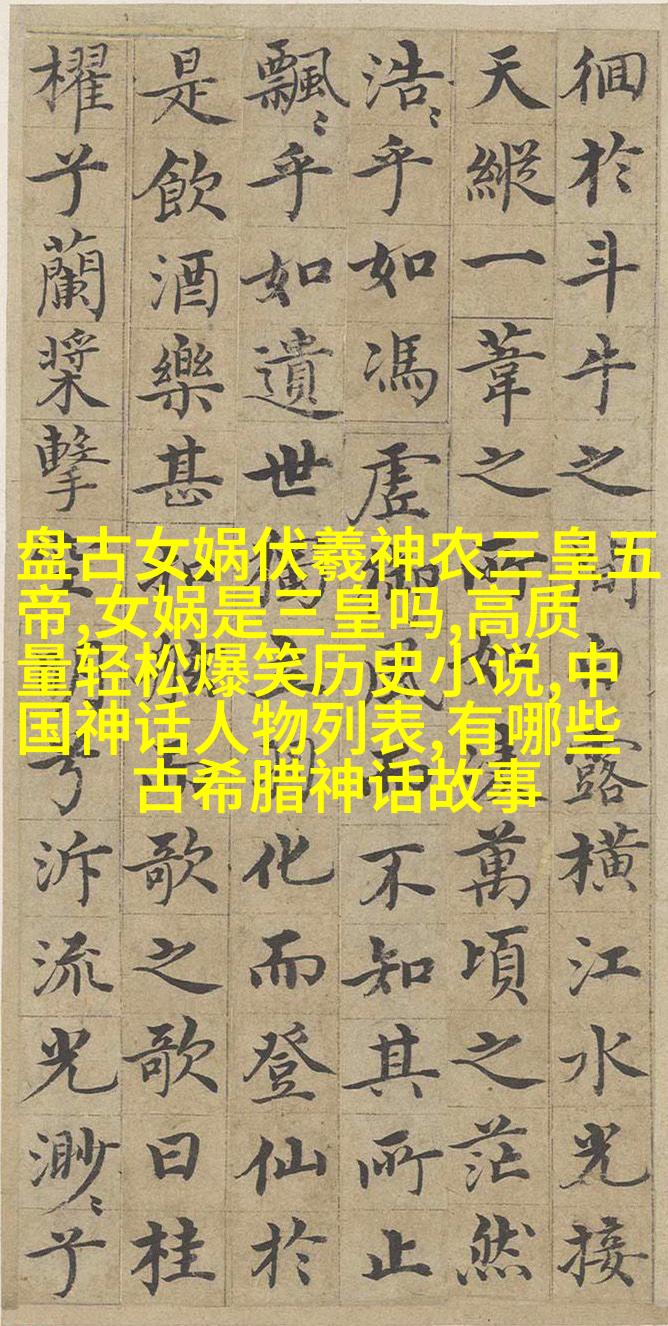 徊於斗牛之間白露橫江水光接
天縱一葦之所如凌萬頃之茫然
浩〻乎如馮虛御風而不知其所止
飄〻乎如遺世獨立羽化而登仙於
是飲酒樂甚扣舷而歌之歌曰桂
櫂兮蘭槳擊空明兮泝流光渺〻兮
盘古女娲伏羲神农三皇五
帝,女娲是三皇吗,高质
量轻松爆笑历史小说,中
国神话人物列表,有哪些
古希腊神话故事